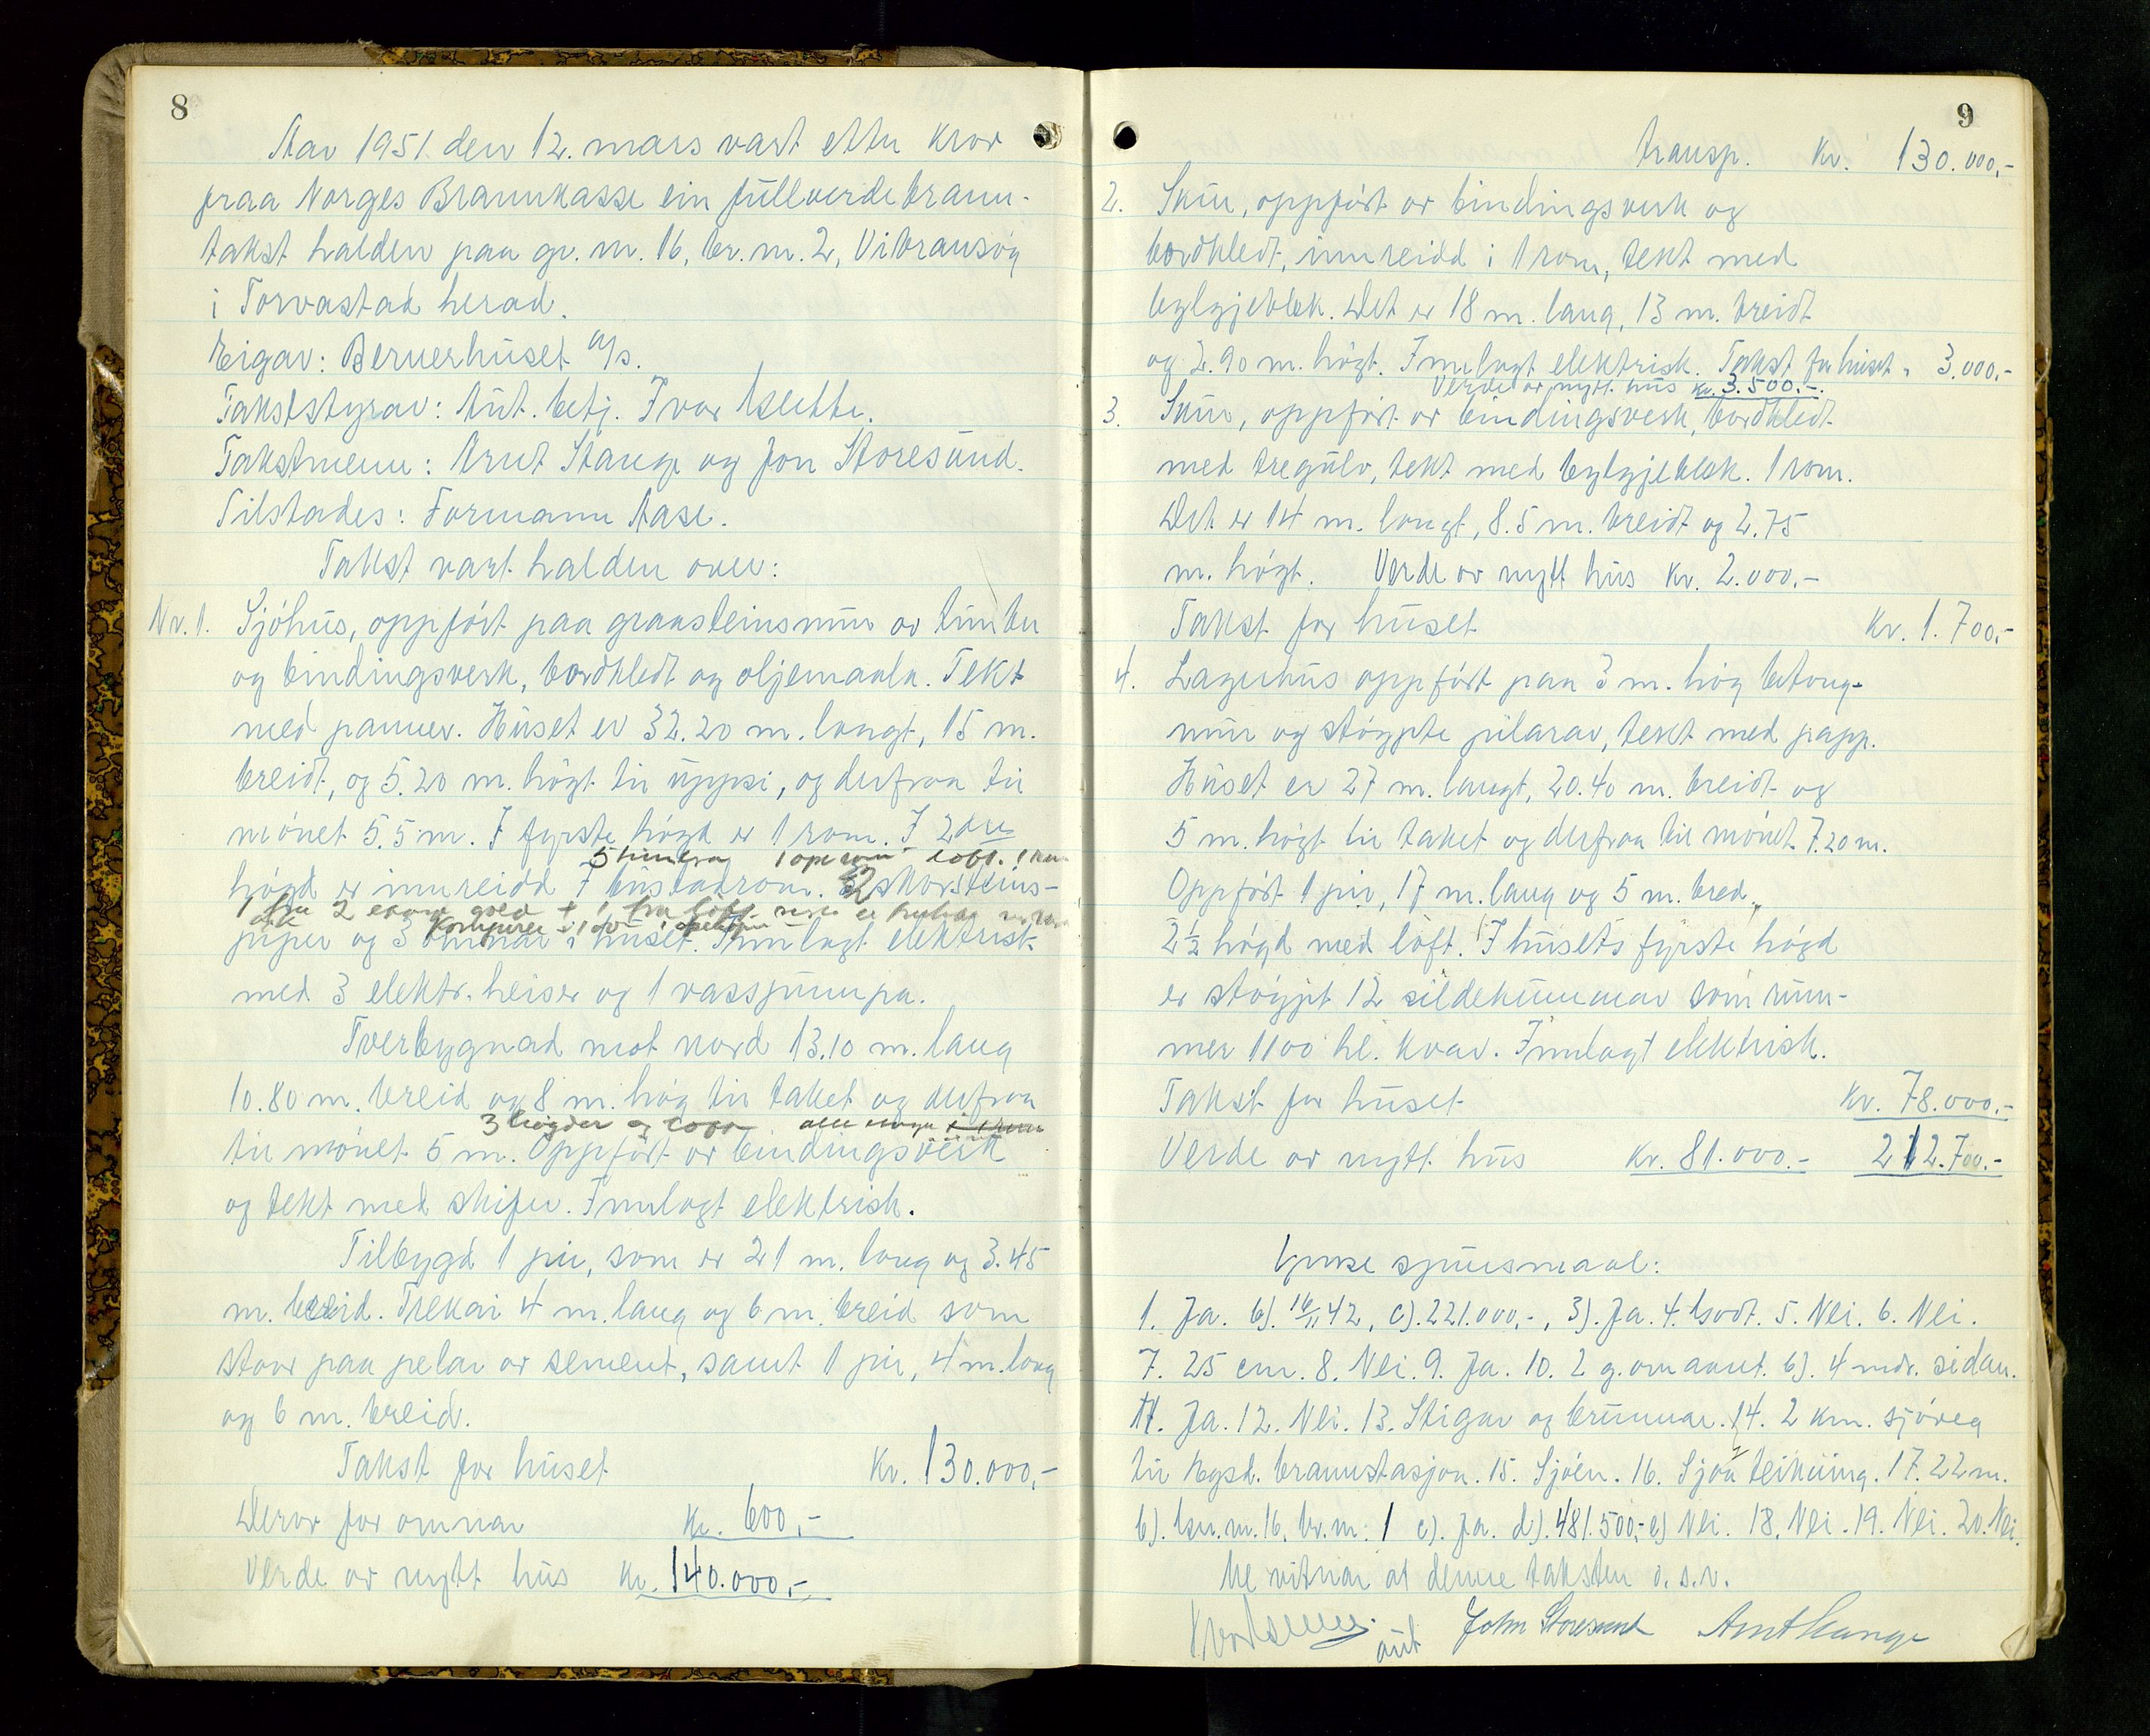 8
Aar 1951 den 12. mars vart etter krav
fraa Norges Brannkasse ein fullverdebrann-
takst halden paa gr. nr. 16, br. nr. 2, Vibransøy
i Torvastad herad.
Eigar: Bernerhuset A/s.
Takststyrar: Aut. betj. Ivar
Takstmenn: Arnt Stange og Jon Storesund.
Tilstades: Formann Aase.
Takst vart halden over:
Nr. 1. Sjøhus, oppført paa graasteinsmur av timber
og bindingsverk, bordkledt og oljemaala. Tekt
med panner. Huset er 32.20 m. langt, 15 m.
breidt, og 5.20 m. høgt til uppsi, og derfraa til
mønet 5.5 m. I fyrste høgd er 1 rom. I 2dre
5 1 ope rom loft. 1 rom
høgd er innreidd 7 bustadrom. 2 skorsteins-
1 fra 2 golv + 1 fra loft
piper og 3 omnar i huset. Innlagt elektrisk
med 3 elektr. heiser og 1 vasspumpa.
Tverbygnad mot nord 13.10 m. lang
10.80 m. breid og 8 m. høg til taket og derfraa
3 høgder og loft alle
til mønet 5 m. Oppført av bindingsverk
og tekt med skifer. Innlagt elektrisk.
Tilbygd 1 pir, som er 21 m. lang og 3.45
m. breid. Trekai 4 m. lang og 6 m. breid som
staar paa pelar av sement, samt 1 pir, 4 m. lang
og 6 m. breid.
Takst for huset Kr. 130.000,-
Derav for omnar Kr. 600,-
Verde av nytt hus Kr. 140.000,-
9
transp. Kr. 130.000,-
2. Skur, oppført av bindingsverk og
bordkledt, innreidd i 1 rom, tekt med
bylgjeblek. Det er 18 m. lang, 13 m. breidt
og 2.90 m. høgt. Innlagt elektrisk. Takst for huset " 3.000,-
Verde av nytt hus kr. 3.500.-
3. Skur, oppført av bindingsverk, bordkledt
med tregulv, tekt med bylgjeblek. 1 rom.
Det er 14 m. langt, 8.5 m. breidt og 2.75
m. høgt. Verde av nytt hus Kr. 2.000.-
Takst for huset Kr. 1.700,-
4. Lagerhus oppført paa 3 m. høg betong-
mur og støypte pilarar, tekt med papp.
Huset er 27 m. langt, 20.40 m. breidt og
5 m. høgt til taket og derfraa til mønet 7.20 m.
Oppført 1 pir, 17 m. lang og 5 m. bred,
2½ høgd med loft. I husets fyrste høgd
er støypt 12 sildekummar som rum-
mer 1100 hl. kvar. Innlagt elektrisk.
Takst for huset Kr. 78.000.-
Verde av nytt hus Kr. 81.000.- 212.700.-
Ymse spursmaal:
1. Ja. b). 16/11 42, c). 221.000,-, 3). Ja. 4. Godt. 5. Nei. 6. Nei.
7. 25 cm. 8. Nei. 9. Ja. 10. 2 g. om aaret. b). 4 mdr. sidan.
11. Ja. 12. Nei. 13. Stigar og brunnar. 14. 2 km. sjøveg
til Hgsd. brannstasjon. 15. Sjøen. 16. Sjaa teikning. 17. 22 m.
b). Gn. nr. 16, br. nr. 1 c). Ja. d). 481.500,- e) Nei. 18. Nei. 19. Nei. 20. Nei.
Me vitnar at denne taksten o.s.v.
aut John Storesund Arnt Stange